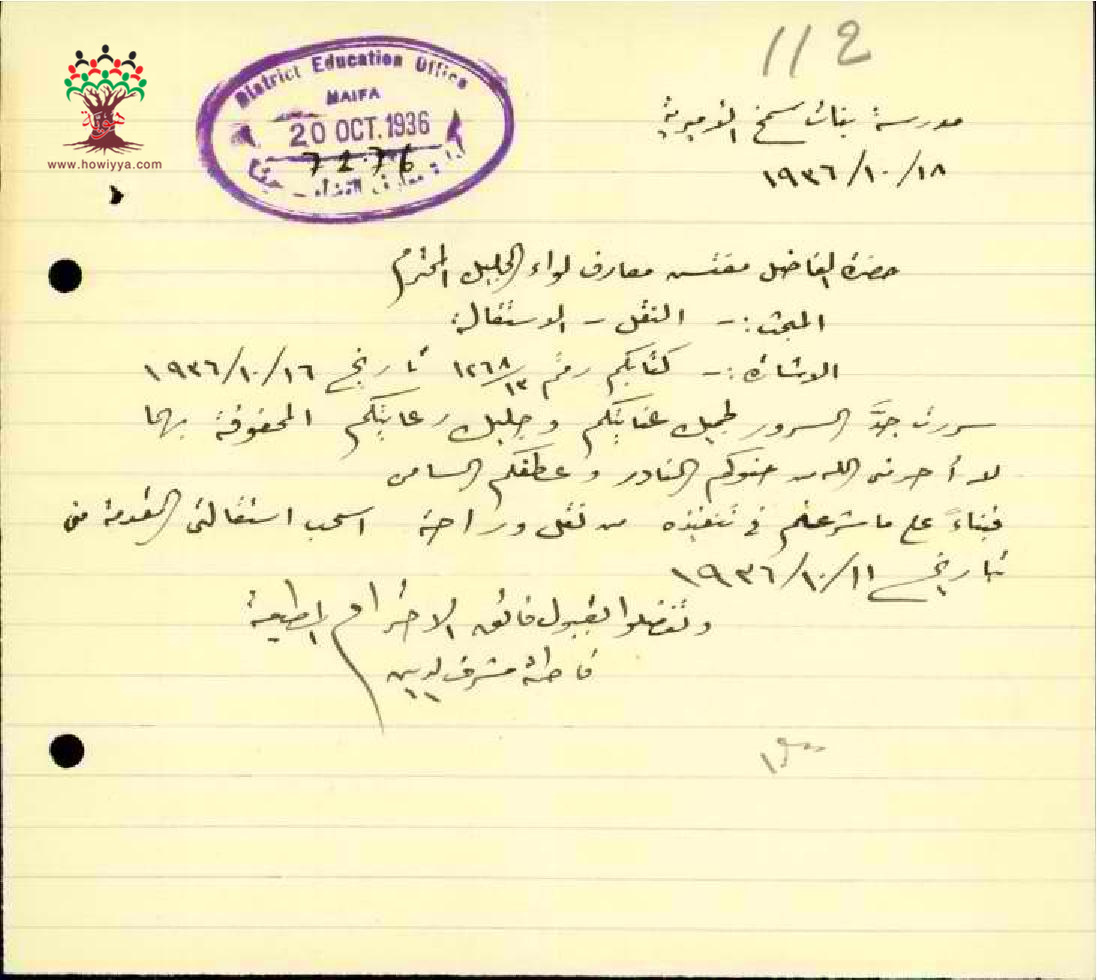 112
District Education Office
HAIFA
20 OCT. 1936
7276
هوية
www.howiyya.com
مدرسة بنات سمخ الأميرية
١٩٣٦/١٠/١٨
حضرة الفاضل مفتش معارف لواء الجليل المحترم
المبحث :- النقل - الاستقالة
الاشارة :- كتابكم رقم ١٢٦٨/١٣ تاريخ ١٩٣٦/١٠/١٦
سررت جدَّ السرور لجميل عنايتكم وجليل رعايتكم المحفوفة بهما
لا أحرمني الله من حنوكم النادر وعطفكم السامي
فبناءً على ما شرعتم في تنفيذه من نقل وراحة اسحب استقالتي المقدمة مني
بتاريخ ١٩٣٦/١٠/١١
وتفضلوا بقبول فائق الاحترام المطيعة
فاطمة شرف الدين